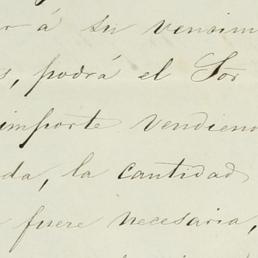 r á su vensim
s, podrá el Sor
importe vendien
da, la cantidad
fuere necesaria,